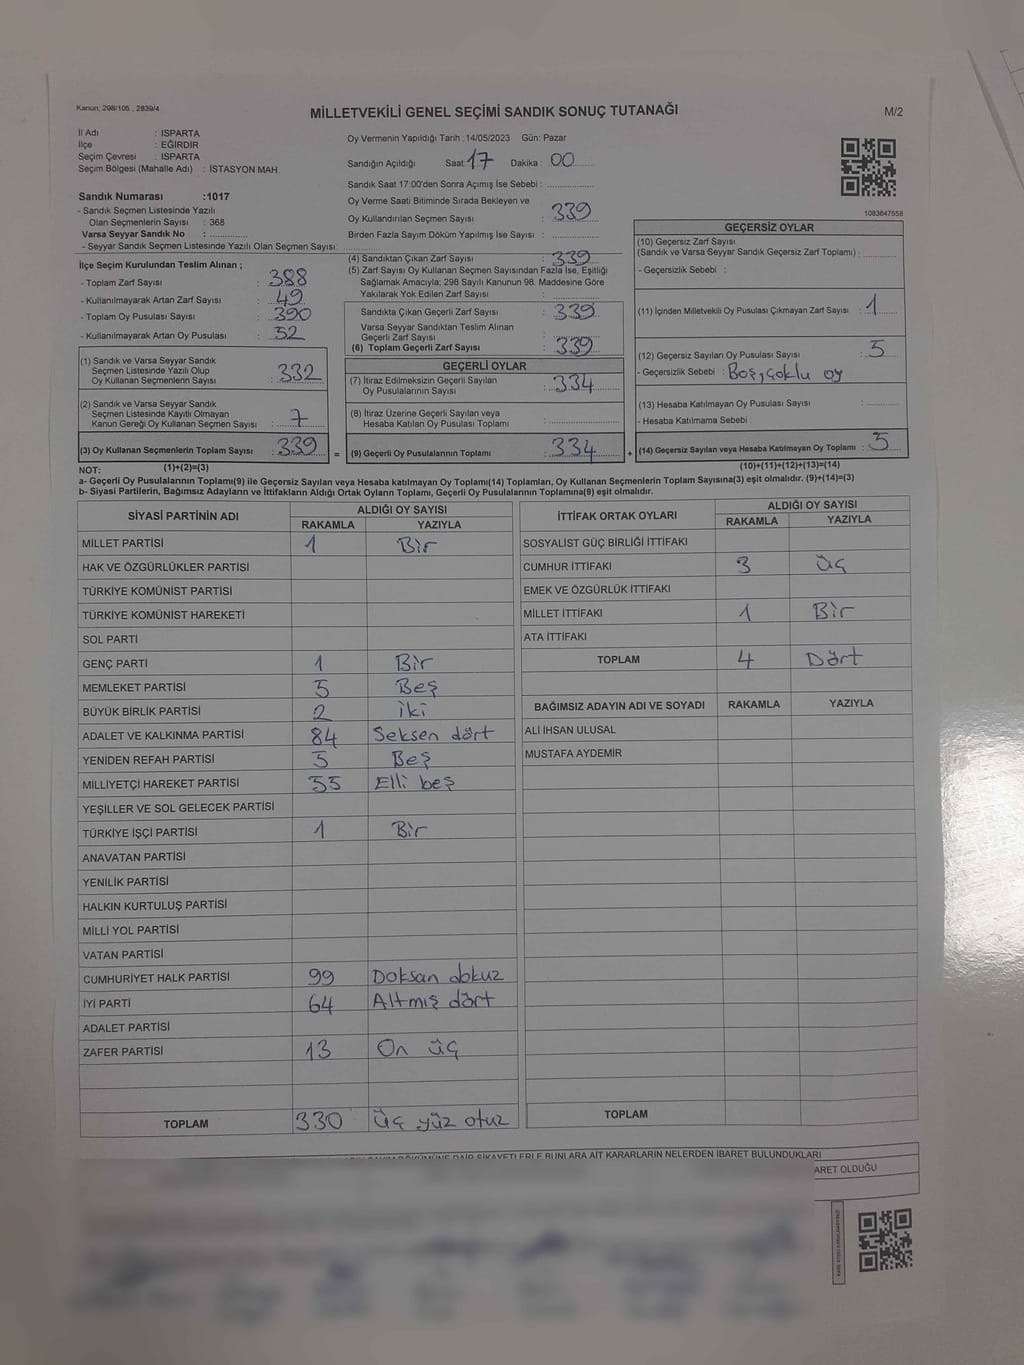 Kanun: 298/105 , 2839/4
MİLLETVEKİLİ GENEL SEÇİMİ SANDIK SONUÇ TUTANAĞI
M/2
İl Adı : ISPARTA
İlçe : EĞİRDİR
Seçim Çevresi : ISPARTA
Seçim Bölgesi (Mahalle Adı) : İSTASYON MAH.
Sandık Numarası :1017
- Sandık Seçmen Listesinde Yazılı
Olan Seçmenlerin Sayısı : 368
Varsa Seyyar Sandık No :
- Seyyar Sandık Seçmen Listesinde Yazılı Olan Seçmen Sayısı:
İlçe Seçim Kurulundan Teslim Alınan ;
- Toplam Zarf Sayısı : 388
- Kullanılmayarak Artan Zarf Sayısı : 49
- Toplam Oy Pusulası Sayısı : 390
- Kullanılmayarak Artan Oy Pusulası : 52
(1) Sandık ve Varsa Seyyar Sandık
Seçmen Listesinde Yazılı Olup
Oy Kullanan Seçmenlerin Sayısı : 332
(2) Sandık ve Varsa Seyyar Sandık
Seçmen Listesinde Kayıtlı Olmayan
Kanun Gereği Oy Kullanan Seçmen Sayısı : 7
(3) Oy Kullanan Seçmenlerin Toplam Sayısı : 339 =
Oy Vermenin Yapıldığı Tarih :14/05/2023 Gün: Pazar
Sandığın Açıldığı Saat: 17 Dakika : 00
Sandık Saat 17:00'den Sonra Açımış İse Sebebi :
Oy Verme Saati Bitiminde Sırada Bekleyen ve
Oy Kullandırılan Seçmen Sayısı : 339
Birden Fazla Sayım Döküm Yapılmış İse Sayısı :
(4) Sandıktan Çıkan Zarf Sayısı : 339
(5) Zarf Sayısı Oy Kullanan Seçmen Sayısından Fazla İse, Eşitliği
Sağlamak Amacıyla; 298 Sayılı Kanunun 98. Maddesine Göre
Yakılarak Yok Edilen Zarf Sayısı :
Sandıkta Çıkan Geçerli Zarf Sayısı : 339
Varsa Seyyar Sandıktan Teslim Alınan
Geçerli Zarf Sayısı :
(6) Toplam Geçerli Zarf Sayısı : 339
GEÇERLİ OYLAR
(7) İtiraz Edilmeksizin Geçerli Sayılan
Oy Pusulalarının Sayısı : 334
(8) İtiraz Üzerine Geçerli Sayılan veya
Hesaba Katılan Oy Pusulası Toplamı :
(9) Geçerli Oy Pusulalarının Toplamı : 334 +
1083647558
GEÇERSİZ OYLAR
(10) Geçersiz Zarf Sayısı
(Sandık ve Varsa Seyyar Sandık Geçersiz Zarf Toplamı) :
- Geçersizlik Sebebi :
(11) İçinden Milletvekili Oy Pusulası Çıkmayan Zarf Sayısı : 1
(12) Geçersiz Sayılan Oy Pusulası Sayısı : 5
- Geçersizlik Sebebi : Boş, çoklu oy
(13) Hesaba Katılmayan Oy Pusulası Sayısı :
- Hesaba Katılmama Sebebi :
(14) Geçersiz Sayılan veya Hesaba Katılmayan Oy Toplamı : 5
NOT: (1)+(2)=(3)
(10)+(11)+(12)+(13)=(14)
a- Geçerli Oy Pusulalarının Toplamı(9) ile Geçersiz Sayılan veya Hesaba katılmayan Oy Toplamı(14) Toplamları, Oy Kullanan Seçmenlerin Toplam Sayısına(3) eşit olmalıdır. (9)+(14)=(3)
b- Siyasi Partilerin, Bağımsız Adayların ve İttifakların Aldığı Ortak Oyların Toplamı, Geçerli Oy Pusulalarının Toplamına(9) eşit olmalıdır.
SİYASİ PARTİNİN ADI
ALDIĞI OY SAYISI
RAKAMLA YAZIYLA
MİLLET PARTİSİ 1 Bir
HAK VE ÖZGÜRLÜKLER PARTİSİ
TÜRKİYE KOMÜNİST PARTİSİ
TÜRKİYE KOMÜNİST HAREKETİ
SOL PARTİ
GENÇ PARTİ 1 Bir
MEMLEKET PARTİSİ 5 Beş
BÜYÜK BİRLİK PARTİSİ 2 iki
ADALET VE KALKINMA PARTİSİ 84 Seksen dört
YENİDEN REFAH PARTİSİ 5 Beş
MİLLİYETÇİ HAREKET PARTİSİ 55 Elli beş
YEŞİLLER VE SOL GELECEK PARTİSİ
TÜRKİYE İŞÇİ PARTİSİ 1 Bir
ANAVATAN PARTİSİ
YENİLİK PARTİSİ
HALKIN KURTULUŞ PARTİSİ
MİLLİ YOL PARTİSİ
VATAN PARTİSİ
CUMHURİYET HALK PARTİSİ 99 Doksan dokuz
İYİ PARTİ 64 Altmış dört
ADALET PARTİSİ
ZAFER PARTİSİ 13 On üç
TOPLAM 330 üç yüz otuz
İTTİFAK ORTAK OYLARI
ALDIĞI OY SAYISI
RAKAMLA YAZIYLA
SOSYALİST GÜÇ BİRLİĞİ İTTİFAKI
CUMHUR İTTİFAKI 3 üç
EMEK VE ÖZGÜRLÜK İTTİFAKI
MİLLET İTTİFAKI 1 Bir
ATA İTTİFAKI
TOPLAM 4 Dört
BAĞIMSIZ ADAYIN ADI VE SOYADI RAKAMLA YAZIYLA
ALİ İHSAN ULUSAL
MUSTAFA AYDEMİR
TOPLAM
DAİR ŞİKAYETLERLE BUNLARA AİT KARARLARIN NELERDEN İBARET BULUNDUKLARI
ARET OLDUĞU